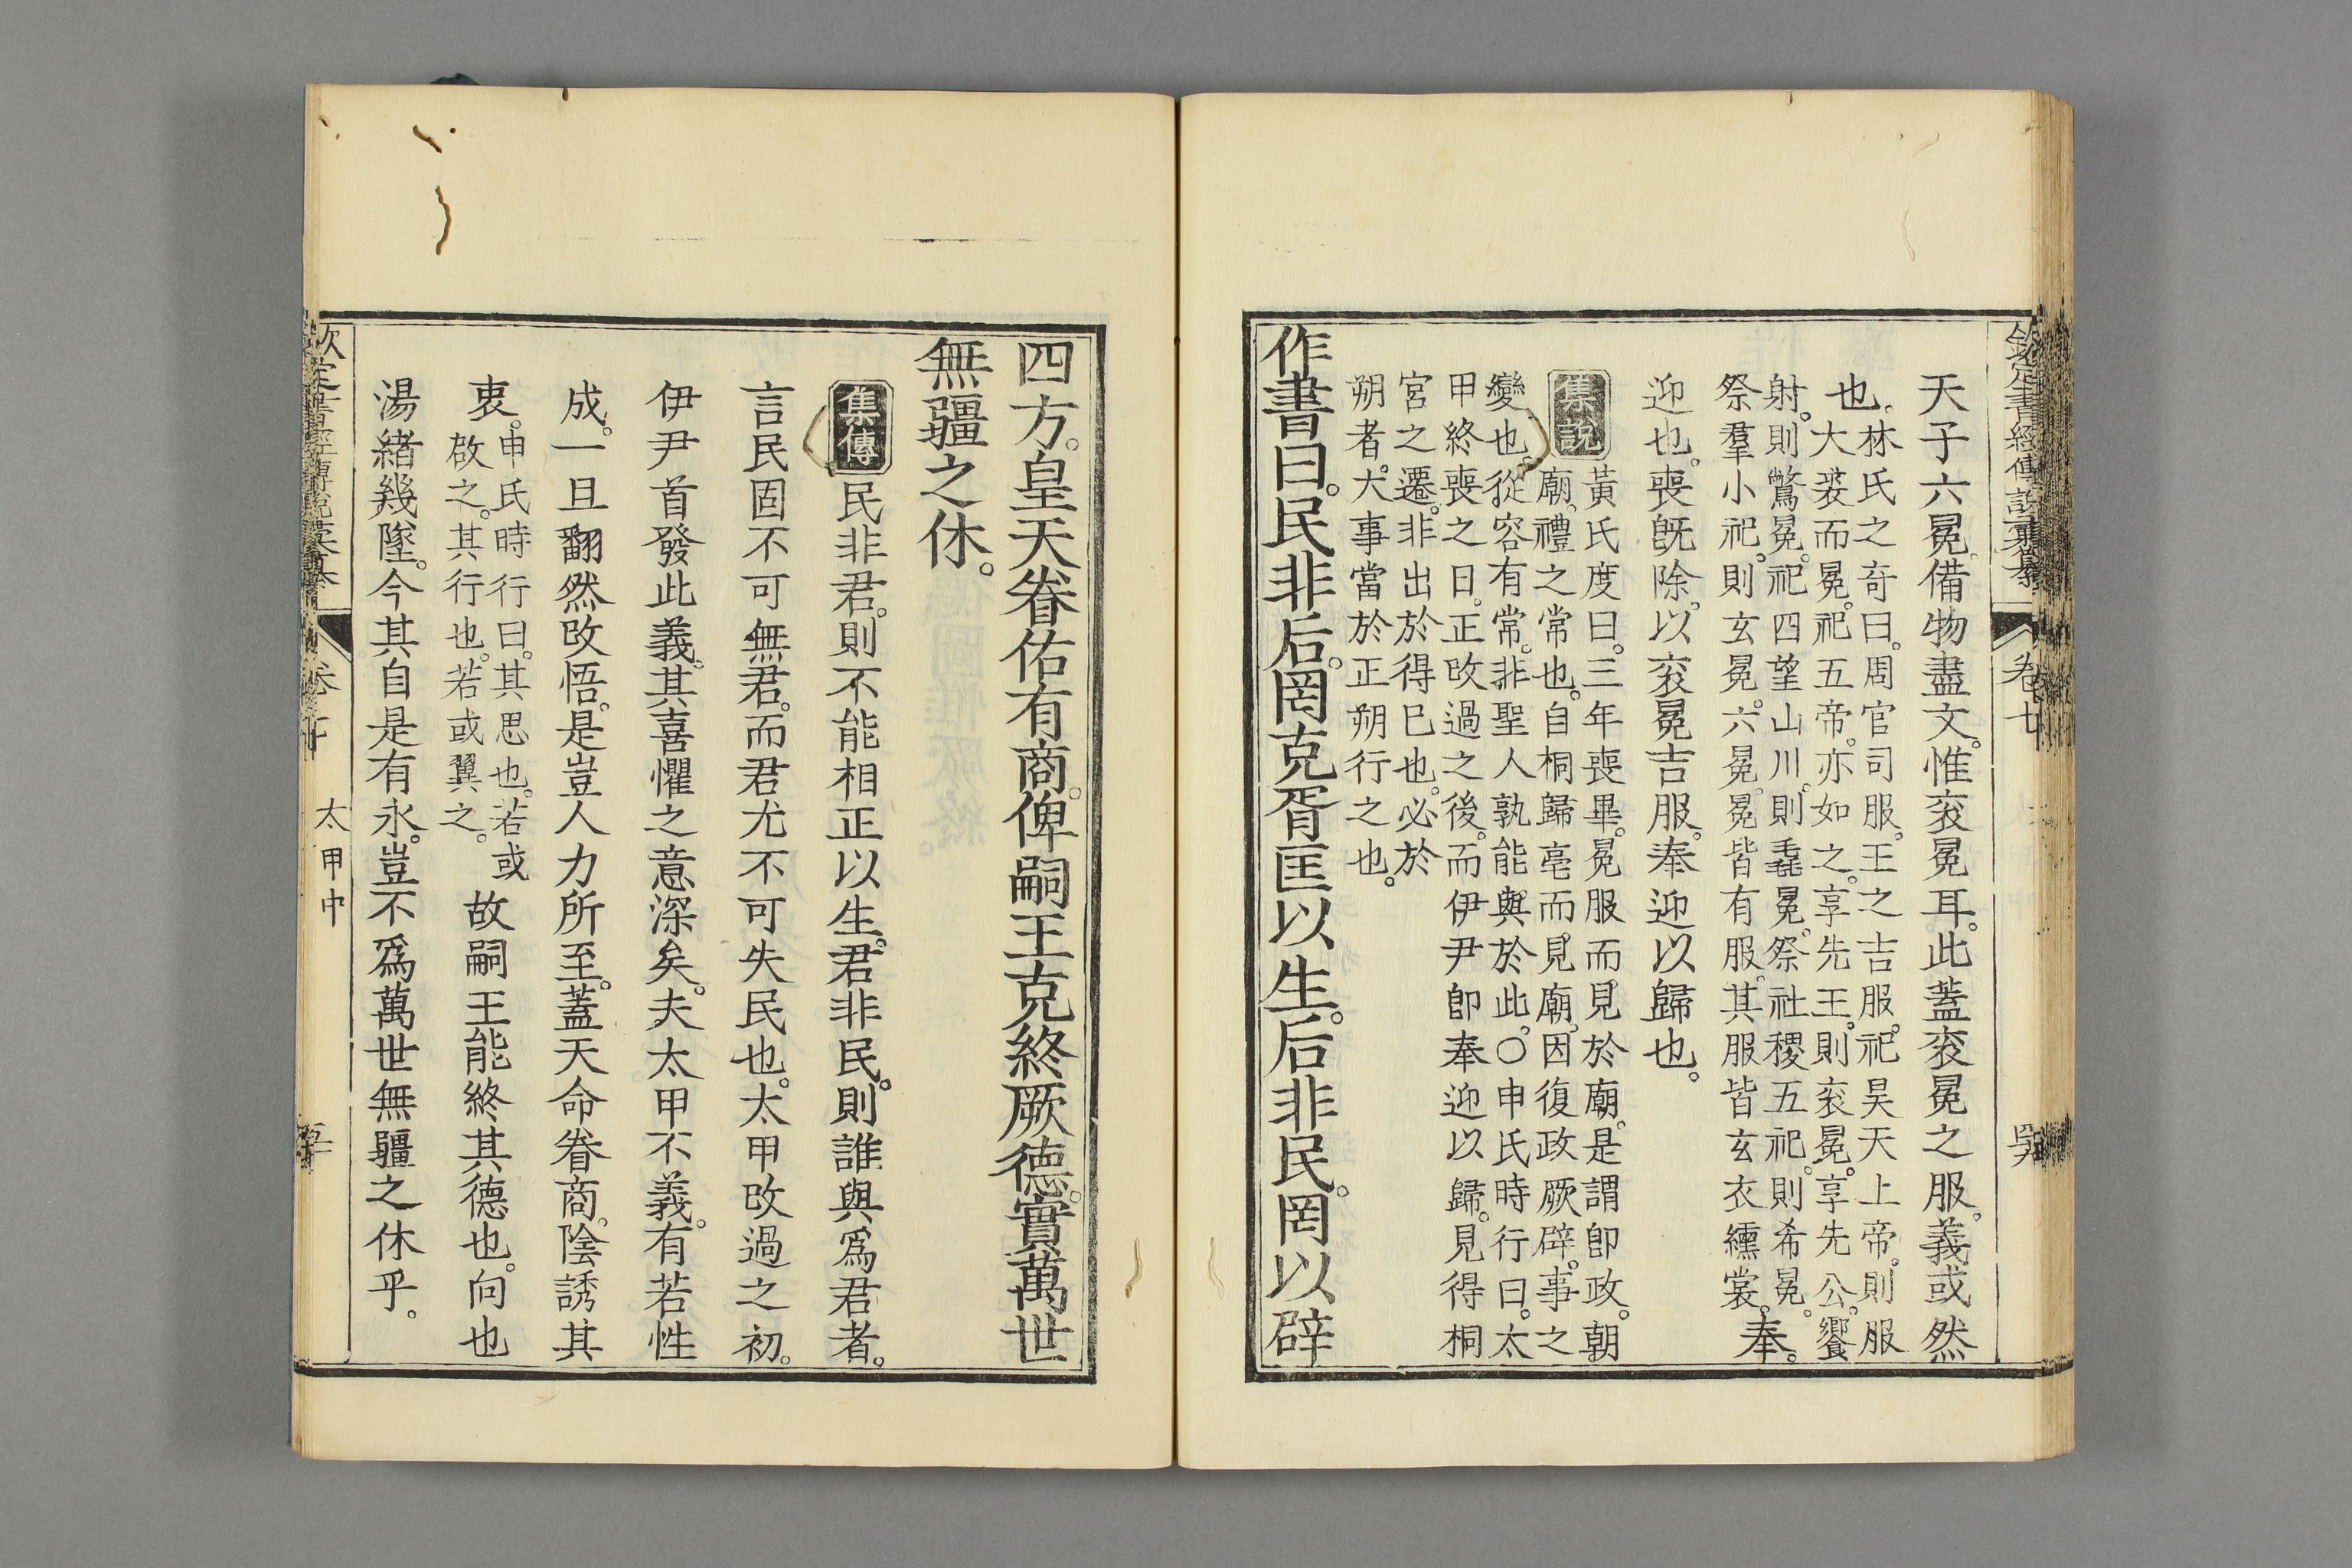 欽定書經傳說彙纂 卷七
天子六冕。備物盡文。惟衮冕耳。此蓋衮冕之服。義或然
也。林氏之奇曰。周官司服。王之吉服。祀昊天上帝。則服
大裘而冕。祀五帝。亦如之。享先王。則衮冕。享先公。饗
射。則鷩冕。祀四望山川。則毳冕。祭社稷五祀。則希冕。
祭羣小祀。則玄冕。六冕。冕皆有服。其服皆玄衣纁裳。奉。
迎也。喪旣除。以衮冕吉服。奉迎以歸也。
集說
黃氏度曰。三年喪畢。冕服而見於廟。是謂卽政。朝
廟。禮之常也。自桐歸亳而見廟。因復政厥辟。事之
變也。從容有常。非聖人孰能與於此。○申氏時行曰。太
甲終喪之日。正改過之後。而伊尹卽奉迎以歸。見得桐
宮之遷。非出於得已也。必於
朔者。大事當於正朔行之也。
作書曰。民非后。罔克胥匡以生。后非民。罔以辟
四方。皇天眷佑有商。俾嗣王克終厥德。實萬世
無疆之休。
集傳
民非君。則不能相正以生。君非民。則誰與爲君者。
言民固不可無君。而君尤不可失民也。太甲改過之初。
伊尹首發此義。其喜懼之意深矣。夫太甲不義。有若性
成。一旦翻然改悟。是豈人力所至。蓋天命眷商。陰誘其
衷。申氏時行曰。其思也。若或
啟之。其行也。若或翼之。
故嗣王能終其德也。向也
湯緒幾墜。今其自是有永。豈不爲萬世無疆之休乎。
太甲中